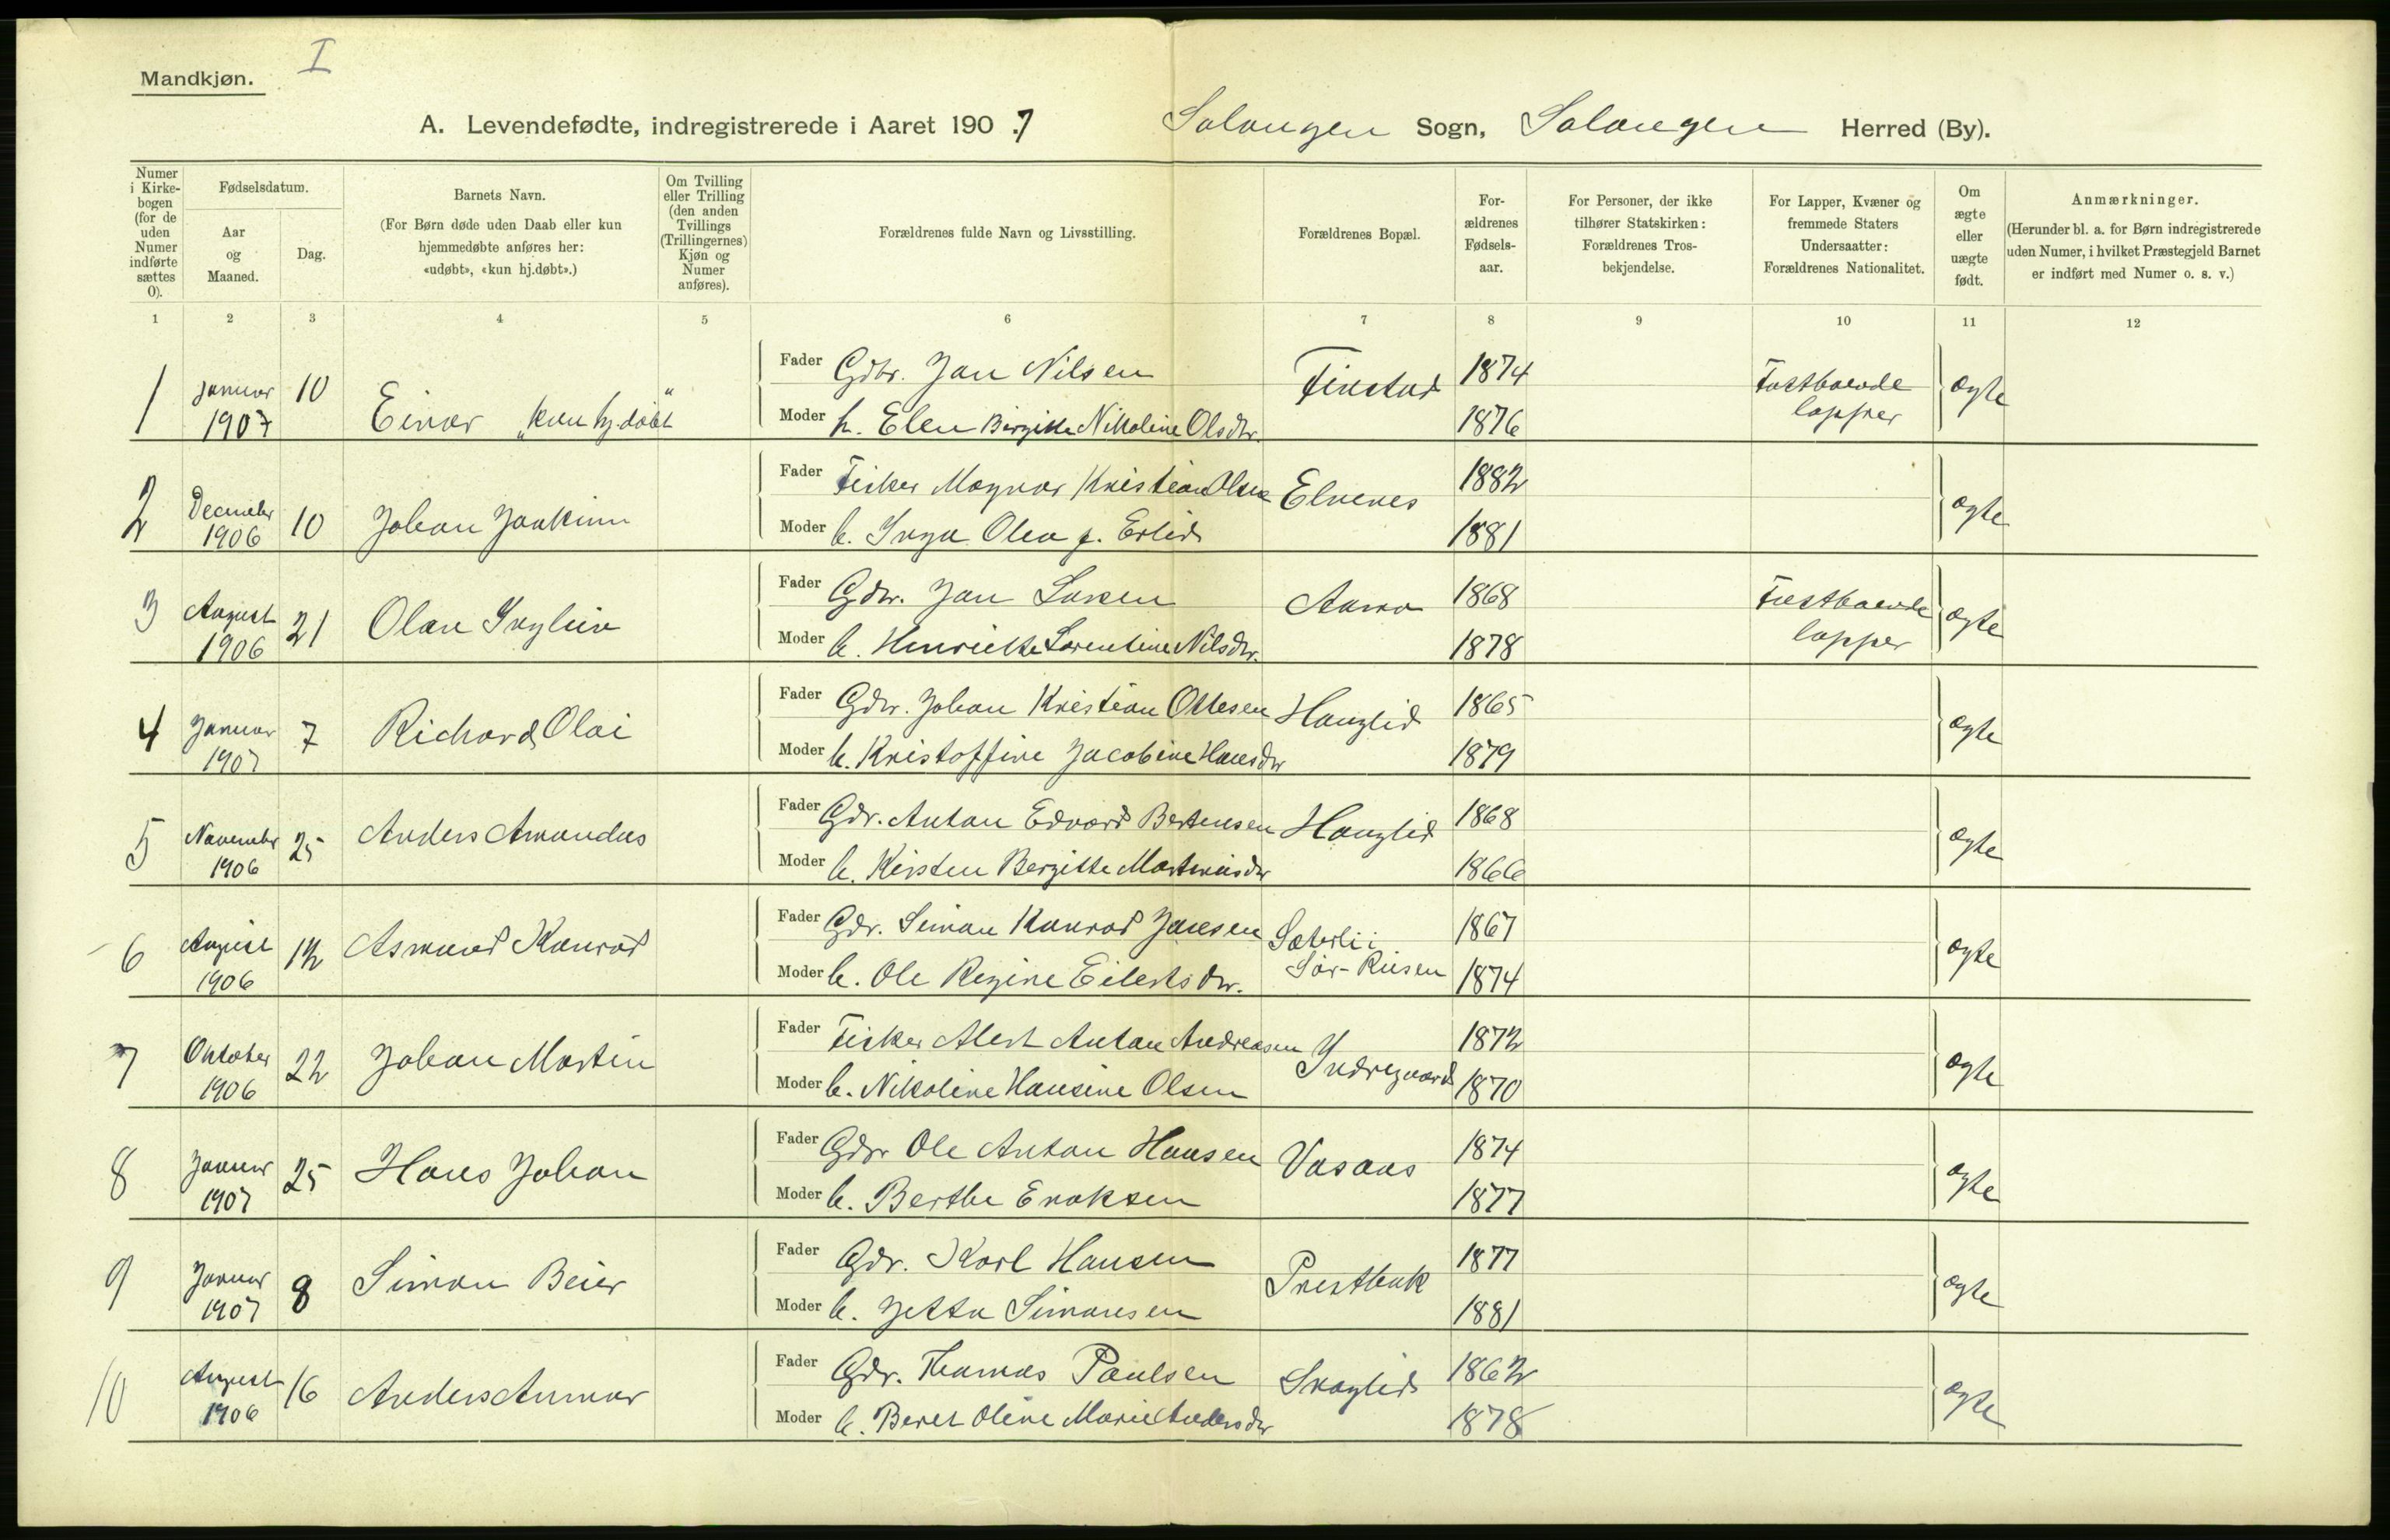 Mandkjøn.
I
A. Levendefødte, indregistrerede i Aaret 190.7 Salangen Sogn, Salangen Herred (By).
Numer i Kirkebogen (for de uden Numer indførte sættes 0).
Fødselsdatum.
Aar og Maaned.
Dag.
Barnets Navn.
(For Børn døde uden Daab eller kun
hjemmedøbte anføres her:
«udøbt», «kun hj.døbt».)
Om Tvilling eller Trilling (den anden Tvillings (Trillingernes) Kjøn og Numer anføres).
Forældrenes fulde Navn og Livsstilling.
Forældrenes Bopæl.
Forældrenes Fødselsaar.
For Personer, der ikke tilhører Statskirken: Forældrenes Trosbekjendelse.
For Lapper, Kvæner og fremmede Staters Undersaatter: Forældrenes Nationalitet.
Om ægte eller uægte født.
Anmærkninger.
(Herunder bl. a. for Børn indregistrerede
uden Numer, i hvilket Præstegjeld Barnet
er indført med Numer o. s. v.)
1 2 3 4 5 6 7 8 9 10 11 12
1 Januar 1907 10 Einar "kun hj.døbt"
Fader Gdbr. Jan Nilsen Finstad 1874 Fastboende lapper ægte
Moder h. Elen Birgitte Nikoline Olsdtr. 1876
2 December 1906 10 Johan Joakim
Fader Fisker Magnar Kristian Olsen Elvenes 1882 ægte
Moder h. Inga Olea f. Erlid 1881
3 August 1906 21 Olav
Fader Gdbr. Jan Larsen 1868 Fastboende lapper ægte
Moder h. Henriette Lorentine Nilsdtr. 1878
4 Januar 1907 7 Richard Olai
Fader Gdbr. Johan Kristian Ottesen Hanglid 1865 ægte
Moder h. Kristoffine Jacobine Hansdtr 1879
5 November 1906 25 Anders Amandus
Fader Gdr. Anton Edvard Berteusen Hanglid 1868 ægte
Moder h. Kirsten Bergitte Martinusdtr 1866
6 August 1906 12 Asmund Konrad
Fader Gdr. Simon Konrad Jansen Sæterli i Sør-Risen 1867 ægte
Moder h. Ole Regine Eilertsdtr. 1874
7 Oktober 1906 22 Johan Martin
Fader Fisker Alert Anton Andreasen Indregaard 1872 ægte
Moder h. Nikoline Hansine Olsen 1870
8 Januar 1907 25 Hans Johan
Fader Gdbr Ole Anton Hansen Vasaas 1874 ægte
Moder h. Berthe Enoksen 1877
9 Januar 1907 8 Simon Beier
Fader Gdr. Karl Hansen Prestbak 1877 ægte
Moder h. Jetta Simonsen 1881
10 August 1906 16 Anders Annar
Fader Gdr. Thomas Paulsen Skoglid 1862 ægte
Moder h. Beret Oline Marie Andersdtr 1878